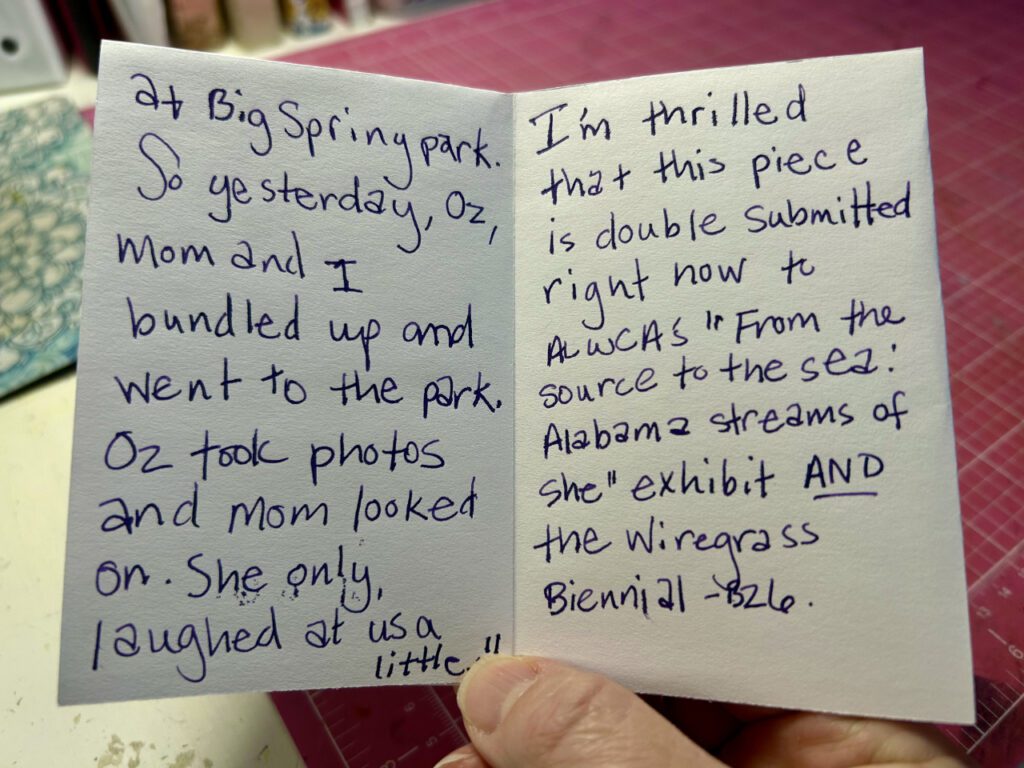 at Big Spring park.
So yesterday, Oz,
Mom and I
bundled up and
went to the park.
Oz took photos
and Mom looked
on. She only,
laughed at us a
little."
I'm thrilled
that this piece
is double submitted
right now to
ALWCAS "From the
source to the sea:
Alabama streams of
she" exhibit AND
the Wiregrass
Biennial - B26.